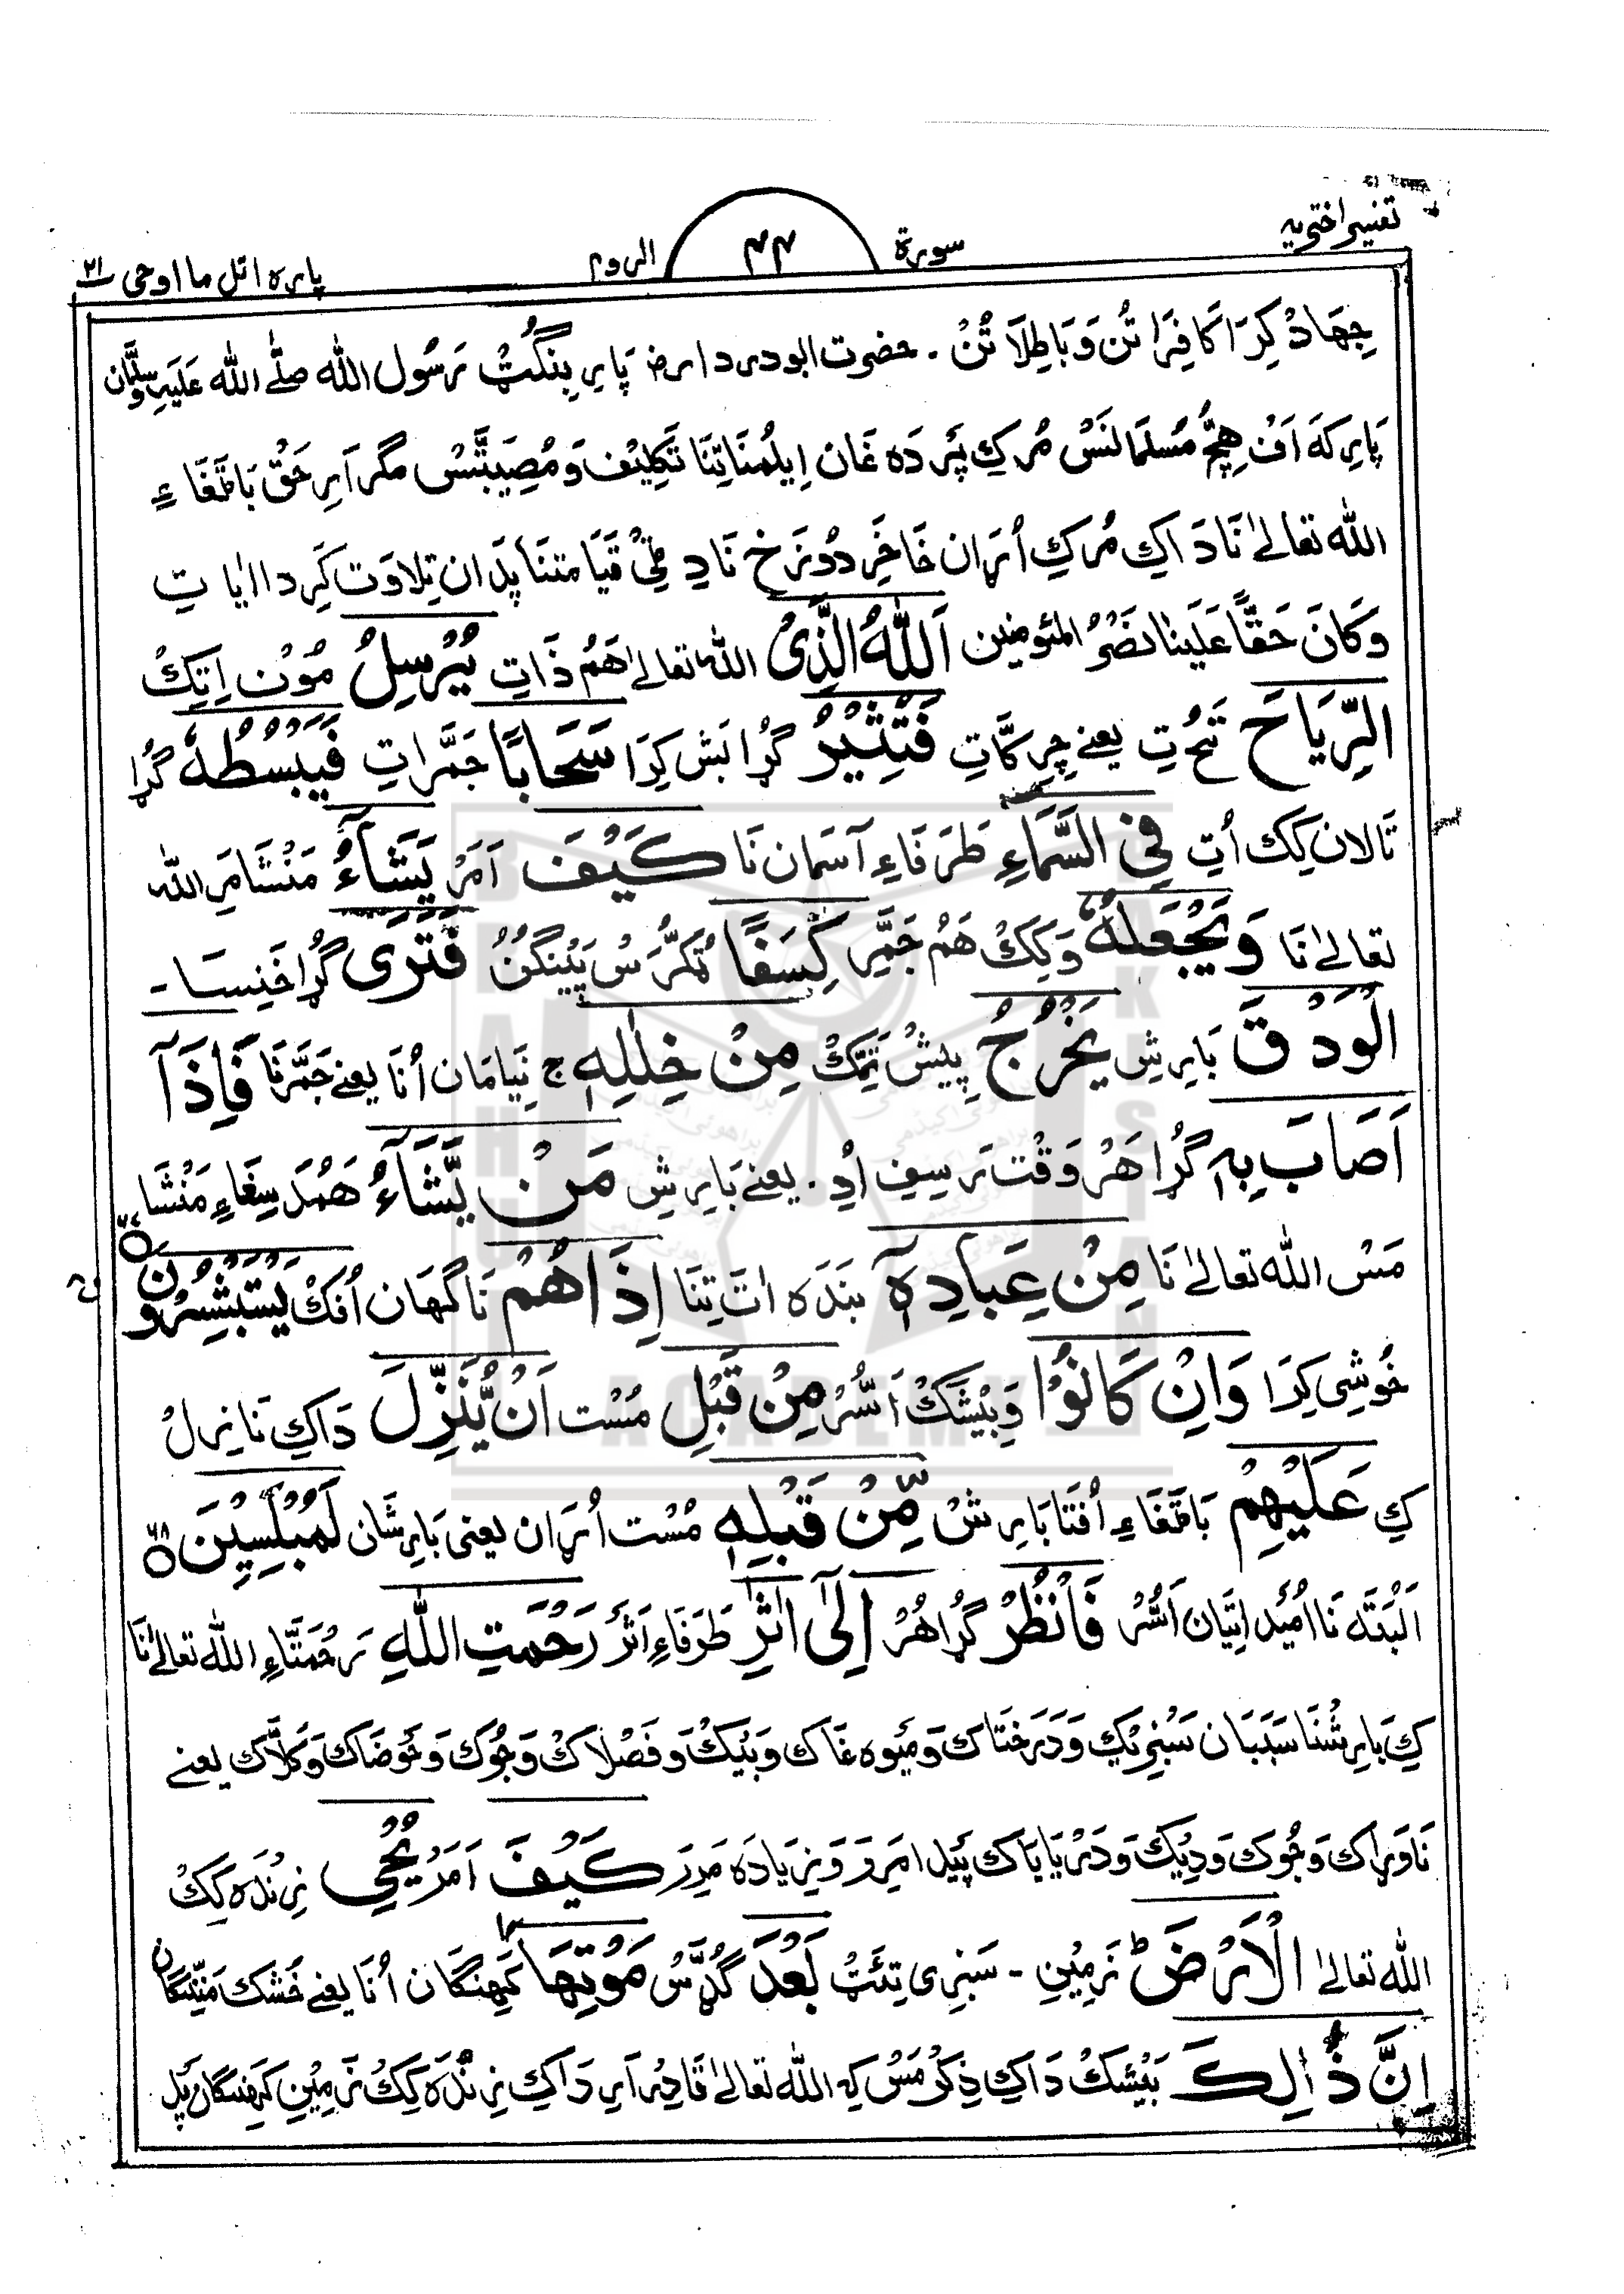 تفسیر اختریہ
سورة ۴۴ الروم
پارہ اتل ما اوحی ۲۱
جِهَادْ كِرَا كَافِرَاتُن وَ بَاطِلَاتُنْ ۔ حضرت ابودرداء رضہ پَارِ بِنگُٹ رَسُول الله صلّے الله عَلَيہِ وسلَّمان
پَارِ كَہ اَفْ هِچُّ مُسلمَالنَسْ مُركِ پَر دَه غَان اِيلُمنَا تِنَا تَكِلِيْف وَ مُصِيْبَتَّسْ مگر اَرِ حَقْ بَاتمغَاءِ
الله تعالےٰ نَا دَاكِ مُركِ اُرَان خَاخَرِ دُوزَخ نَادِ ٹِیْ قَيَامتنَا پِدَان تِلَاوَت كَرِ دا اٰيَاتِ
وَكَانَ حَقًّا عَلَينَا نَصْرُ المُئومِنِین اَللّٰهُ الَّذِىْ الله تعالےٰ هَمُ ذَاتِ يُرْسِلُ مُوْن اِتِكْ
الرِّيَاحَ تَہُتِ یعنے چِرِكَّاتِ فَتُثِيْرُ گُڑا بَش كِرَا سَحَابًا جَمَّرَاتِ فَيَبْسُطُهٗ گُڑا
تَالان كِك اُتِ فِى السَّمَاءِ طَرَفَاءِ آسَمان نَا كَيْفَ اَمَرْ يَشَآءُ مَنْشَا مَرِ الله
تعالےٰ نَا وَيَجْعَلُهٗ وَ كِكْ هَمُ جَمَّرِ كِسَفًا ٹُكَرُّسْ پَیْنگُنْ فَتَرَى گُڑا خَنِسَا۔
الْوَدْقَ بَارِشِ يَخْرُجُ پِيْش تَمِّكْ مِنْ خِلٰلِهٖ ج نِيَامَان اُنَا یعنے جَمَّرنَا فَاِذَآ
اَصَابَ بِهٖ گُڑا هَرْ وَقْت رَسِفِ اُدِ ۔ یعنے بَارِشِ مَنْ يَّشَآءُ هَمُدَ سِغَاءِ مَنْشَا
مَسْ الله تعالےٰ نَا مِنْ عِبَادِهٖٓ بَنْدَه اٰتَ تِنَا اِذَا هُمْ نَاگَهَان اُفَكْ يَسْتَبْشِرُوْنَ ۴۸
خُوشِى كِرَا وَاِنْ كَانُوْا وَبَيْشَكْ اَسُّرْ مِنْ قَبْلِ مُسْت اَنْ يُّنَزِّلَ دَاكِ نَازِلْ
كِ عَلَيْهِمْ بَاتمغَاءِ اُفتَا بَارِشْ مِّنْ قَبْلِهٖ مُسْت اُرَان یعنی بَارِشَان لَمُبْلِسِيْنَ ۴۹
اَلْبَتَه نَا اُمِيْد اِتِيَان اَسُّر فَانْظُرْ گُڑا هُرْ اِلٰٓى اٰثٰرِ طَرَفَاءِ اَثَرَ رَحْمَتِ اللّٰهِ رَحْمَتَّاءِ الله تعالےٰ نَا
كِ بَارِشْنَا سَبَبَان سَبْزِیْك وَ دَرَخْتَاك وَ مِيْوه غَاك وَ بَيْك وَ فَصْلَاك وَ جُوك وَ حَوضَاك وَ كَلَّاك یعنے
نَاوَڑَاك وَ جُوك وَ دِيْك وَ دَرْيَابَاك پَيْدا مَرِ وَ زِيَادَه مَرِرَ كَيْفَ اَمَرْ يُحْىِ زِنْدَه كِكْ
الله تعالیٰ الْاَرْضَ ط زَمِيْنِ ۔ سَبْزِى تِئَٹ بَعْدَ گُڈَّسْ مَوْتِهَا كَہِنگَان اُنَا یعنے خَشَك مَنِّنگَان
اِنَّ ذٰلِكَ بَيْشَكْ دَاكِ ذِكْر مَسْ كِہ الله تعالےٰ قَادِر اَرِ دَاكِ زِنْدَه كِكْ زَمِيْنِ كَہِنگَان پَد